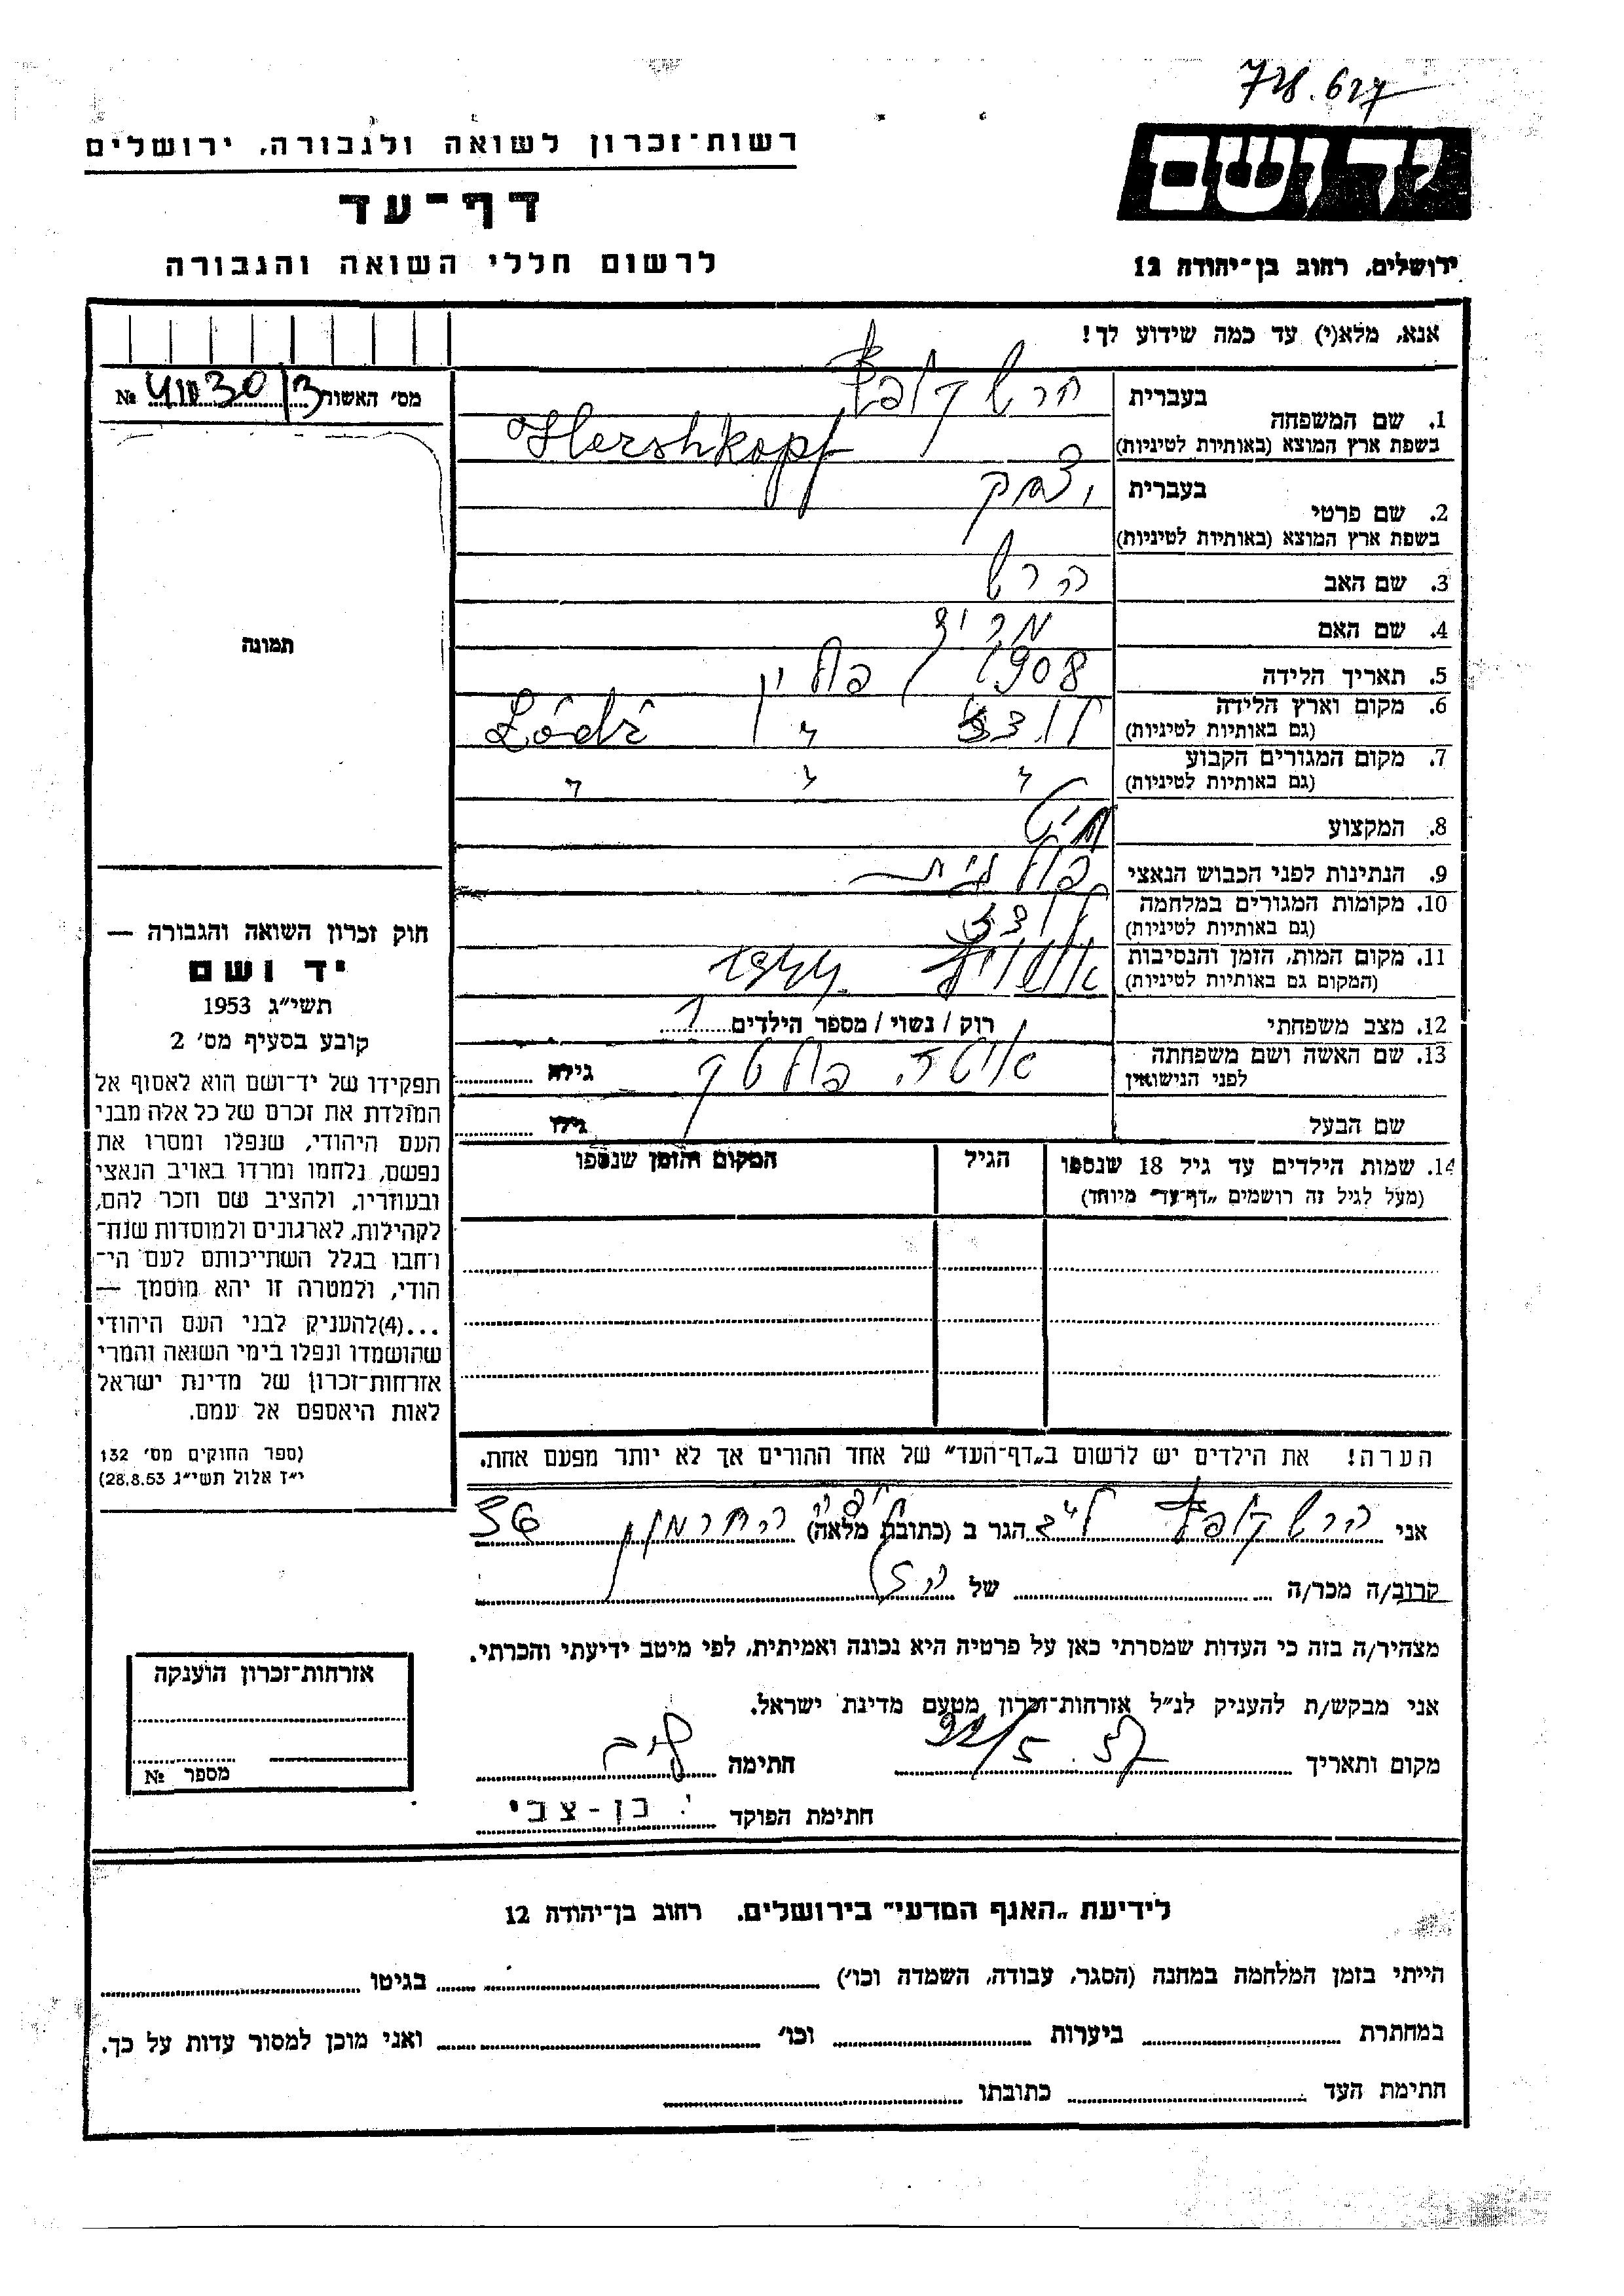 רשות־זכרון לשואה ולגבורה, ירושלים
דף־עד
לרשום חללי השואה והגבורה
יד ושם
ירושלים, רחוב בן־יהודה 12
אנא, מלא(י) עד כמה שידוע לך!
מס' האשור № 3
1. שם המשפחה בעברית הרשקופף
בשפת ארץ המוצא (באותיות לטיניות) Hershkopf
2. שם פרטי בעברית יצחק
בשפת ארץ המוצא (באותיות לטיניות)
3. שם האב הרש
4. שם האם
5. תאריך הלידה 1908 פולין
6. מקום וארץ הלידה לודז " Łódź
(גם באותיות לטיניות)
7. מקום המגורים הקבוע " " "
(גם באותיות לטיניות)
8. המקצוע חיט
9. הנתינות לפני הכבוש הנאצי פולנית
10. מקומות המגורים במלחמה לודז
(גם באותיות לטיניות)
11. מקום המות, הזמן והנסיבות 1944
(המקום גם באותיות לטיניות)
12. מצב משפחתי רוק / נשוי / מספר הילדים 1
13. שם האשה ושם משפחתה
לפני הנישואין גילה
שם הבעל גילו
14. שמות הילדים עד גיל 18 שנספו הגיל המקום והזמן שנספו
(מעל לגיל זה רושמים „דף־עד" מיוחד)
הערה! את הילדים יש לרשום ב„דף־העד" של אחד ההורים אך לא יותר מפעם אחת.
תמונה
חוק זכרון השואה והגבורה —
יד ושם
תשי"ג 1953
קובע בסעיף מס' 2
תפקידו של יד־ושם הוא לאסוף אל
המולדת את זכרם של כל אלה מבני
העם היהודי, שנפלו ומסרו את
נפשם, נלחמו ומרדו באויב הנאצי
ובעוזריו, ולהציב שם וזכר להם,
לקהילות, לארגונים ולמוסדות שנח־
רחבו בגלל השתייכותם לעם הי־
הודי, ולמטרה זו יהא מוסמך —
...(4)להעניק לבני העם היהודי
שהושמדו ונפלו בימי השואה והמרי
אזרחות־זכרון של מדינת ישראל
לאות היאספם אל עמם.
(ספר החוקים מס' 132
י"ז אלול תשי"ג 28.8.53)
אני הרשקופף הגר ב (כתובת מלאה) חיפה החרמון 36
קרוב/ה מכר/ה של
מצהיר/ה בזה כי העדות שמסרתי כאן על פרטיה היא נכונה ואמיתית, לפי מיטב ידיעתי והכרתי.
אני מבקש/ת להעניק לנ"ל אזרחות־זכרון מטעם מדינת ישראל.
מקום ותאריך חתימה
חתימת הפוקד י. בן-צבי
אזרחות־זכרון הוענקה
מספר №
לידיעת „האגף המדעי" בירושלים. רחוב בן־יהודה 12
הייתי בזמן המלחמה במחנה (הסגר, עבודה, השמדה וכו') בגיטו
במחתרת ביערות וכו' ואני מוכן למסור עדות על כך.
חתימת העד כתובתו